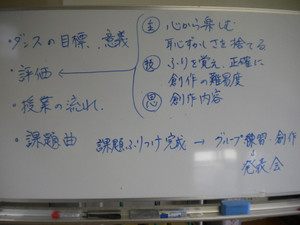 ・ダンスの目標、意義
・評価 ←
主 心から楽しむ
恥ずかしさを捨てる
技 ふりを覚え、正確に
創作の難易度
思 創作内容
・授業の流れ
・課題曲 課題ふりつけ完成 → グループ練習・創作
↓
発表会